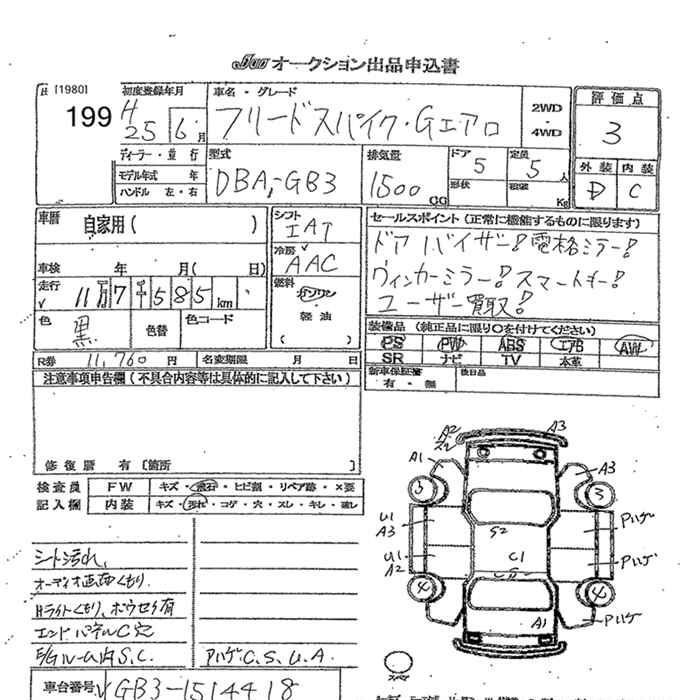 JU オークション出品申込書
[1980]
199
初度登録年月
H 25 6 月
車名・グレード
フリードスパイク・Gエアロ
2WD ・ 4WD
評価点
3
外装 内装
D C
ディーラー・並行
モデル年式 年
ハンドル 左・右
型式
DBA-GB3
排気量
1500 CC
ドア
5
形状
定員
5人
Kg
車歴 自家用( )
シフト
IAT
冷房
AAC
燃料
ガソリン
・
軽油
( )
セールスポイント(正常に機能するものに限ります)
ドアバイザー! 電格ミラー!
ウィンカーミラー! スマートキー!
ユーザー買取!
車検 年 月( 日)
走行 11万7千585km
色 黒
色替
色コード
装備品(純正品に限り○を付けてください)
PS PW ABS エアB AW
SR ナビ TV 本革
新車保証書
有・無
後日品
R券 11,760円
名変期限 月 日
注意事項申告欄(不具合内容等は具体的に記入して下さい)
修復歴 有 [箇所 ]
検査員
記入欄
FW キズ・飛石・ヒビ割・リペア跡・×要
内装 キズ・汚れ・コゲ・穴・スレ・キレ・違し
シート汚れ、
オーディオ画面くもり.
Hライトくもり、ホウセキ有
エンドパネルC穴
E/Gルーム内S.C.
Pハゲ C.S.U.A.
車台番号 GB3-1514418
A2
A3
A1
A3
3
3
U1
A3
S2
Pハゲ
U1
A2
C1
Pハゲ
4
4
A1
Pハゲ
スペア